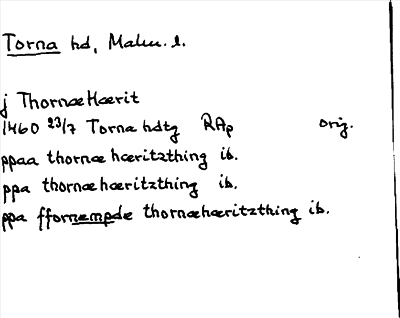 Torna hd, Malm. l.
j Thornæ Hærit
1460 23/7 Torna hdtg RAp orig.
ppaa thornæ hæritzthing ib.
ppa thornæhæritzthing ib.
ppa ffornempde thornæhæritzthing ib.